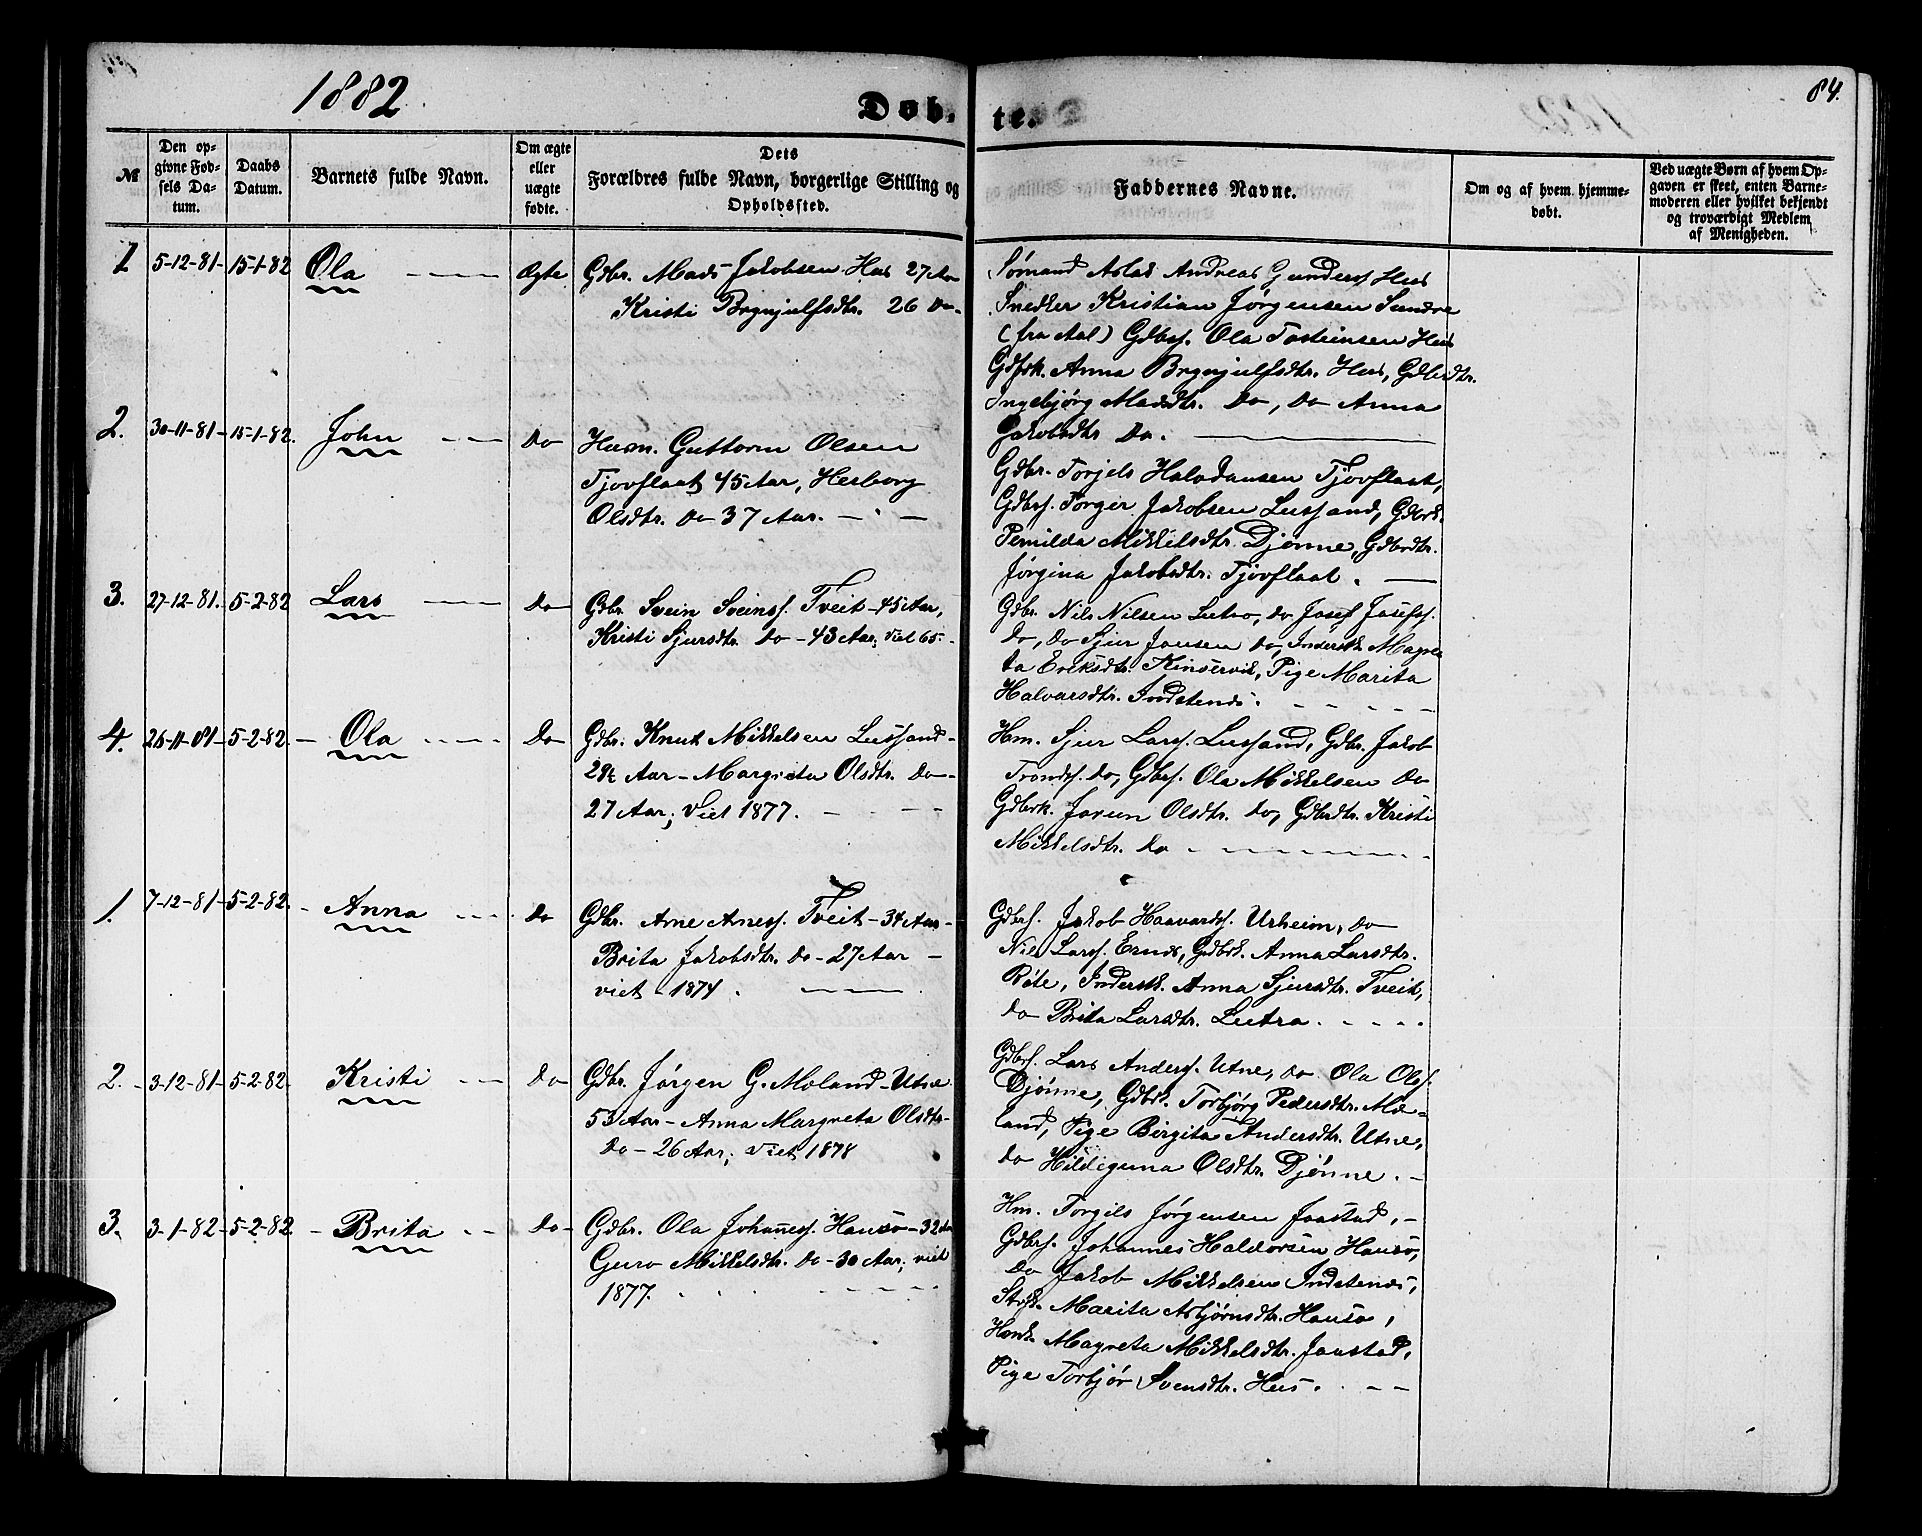 1882
Døb-
te.
84.
№
Den op-
givne Fød-
sels Da-
tum.
Daabs
Datum.
Barnets fulde Navn.
Om ægte
eller
uægte
fødte.
Dets
Forældres fulde Navn, borgerlige Stilling og
Opholdssted.
Faddernes Navne.
Om og af hvem hjemme-
døbt.
Ved uægte Børn af hvem Op-
gaven er skeet, enten Barne-
moderen eller hvilket bekjendt
og troværdigt Medlem
af Menigheden.
1 5-12-81- 15-1-82 Ola Ægte
Gdbr. Mads Jakobsen Hus 27 Aar
Kristi Brynjulfsdtr. 26 Do-
Sømand Aslak Andreas Gunders. Hus
Snedker Kristian Jørgensen Sundre
(fra Aal) Gdbrs. Ola Tosteinsen Hus
Anna Brynjulfsdtr. Hus, Gdbrdtr.
Ingebjørg Madsdtr. Do, Do Anna
Jakobsdtr Do.
2. 30-11-81- 15-1-82. John Do
Husm. Guttorm Olsen
Tjovflaat 45 Aar, Herborg
Olsdtr. Do 37 Aar.
Gdbr. Torjels Halvdansen Tjovflaat,
Gdbrs. Torger Jakobsen Lussand, Gdbrk.
Pernilda Mikkelsdtr. Djønne, Gdbrdtr.
Jørgina Jakobsdtr. Tjovflaat.
3. 27-12-81. 5-2-82 Lars Do
Gdbr. Svein Sveins. Tveit - 45 Aar,
Kristi Sjursdtr. Do - 43 Aar; viet 65-
Gdbr. Nils Nilsen Lutro, Do Josef Josefs.
Do, Do Sjur Jansen Do, Inderstk. Magre
ta Eriksdtr. Kinservik, Pige Marita
Halvarsdtr. Indstenes.
4. 26-11-81- 5-2-82. - Ola Do
Gdbr. Knut Mikkelsen Lussand-
Aar - Margreta Olsdtr. Do-
27 Aar; Viet 1877.
Hm. Sjur Lars. Lussand, Gdbr. Jakob
Tronds. Do, Gdbrs. Ola Mikkelsen Do
Gdbrk. Jorun Olsdtr. Do, Gdbrdtr. Kristi
Mikkelsdtr. Do
1. 7-12-81- 5-2-82. - Anna Do
Gdbr. Arne Arnes. Tveit - 34 Aar-
Brita Jakobsdtr. Do - 27 Aar -
viet - 1874.
Gdbrs. Jakob Haavards. Urheim, Do
Nils Lars. Ernes, Gdbrk. Anna Larsdtr.
Røte, Inderstk. Anna Sjursdtr. Tveit,
Do Brita Larsdtr. Lutro.
2. - 3-12-81- 5-2-82. Kristi Do
Gdbr. Jørgen G. Moland - Utne
53 Aar - Anna Margreta Olsdtr-
Do - 26 Aar; Viet 1878
Gdbrs. Lars Anders. Utne, Do Ola Ols.
Djønne, Gdbrk. Torbjørg Pedersdtr. Mo-
land, Pige Birgita Andersdtr. Utne,
Do Hildiguna Olsdtr. Djønne.
3. 3-1-82- 5-2-82. - Brita Do-
Gdbr. Ola Johaness. Hauso - 32 Aar
Guro Mikkelsdtr. Do - 30 Aar; viet
1877.
Hm. Torgils Jørgensen Jaastad,-
Gdbrs. Johannes Haldorsen Hauso,
Do Jakob Mikkelsen Indstenes,
Marita Asbjørnsdtr. Hauso,
Magreta Mikkelsdtr. Jaastad,
Pige Torbjør Svensdtr. Hus.